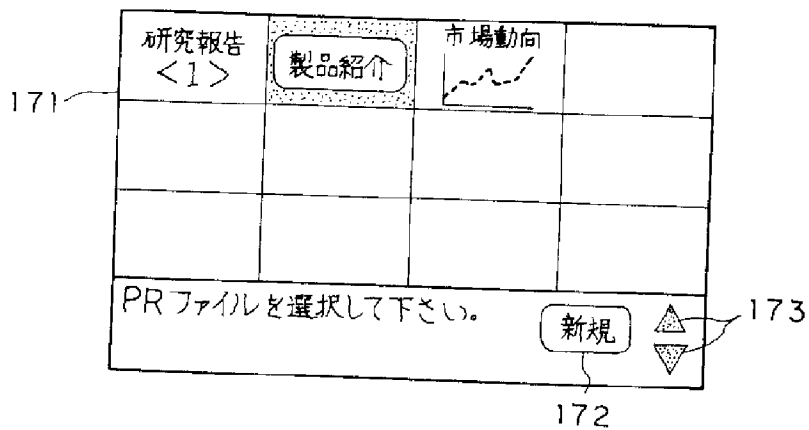 研究報告
<1>
製品紹介
市場動向
171
PRファイルを選択して下さい。
新規
173
172